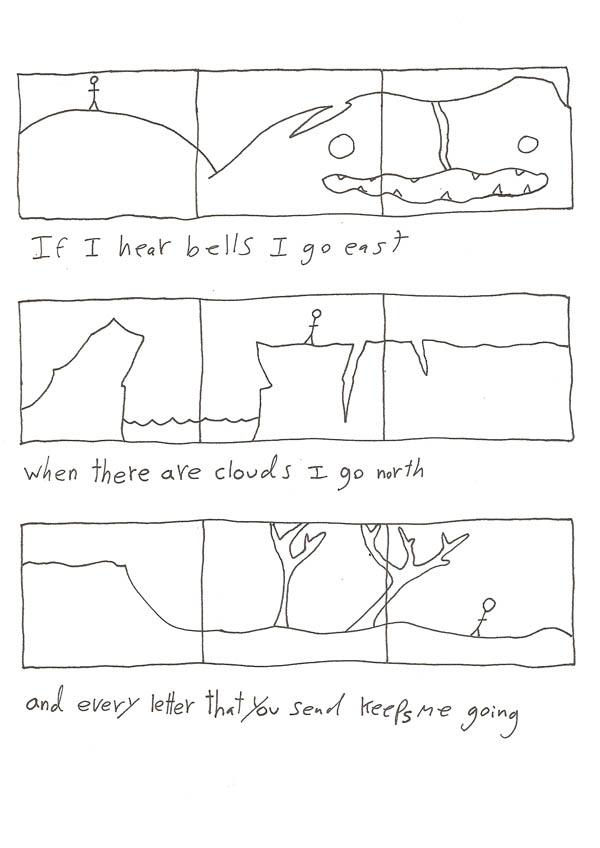 If I hear bells I go east
when there are clouds I go north
and every letter that you send keeps me going